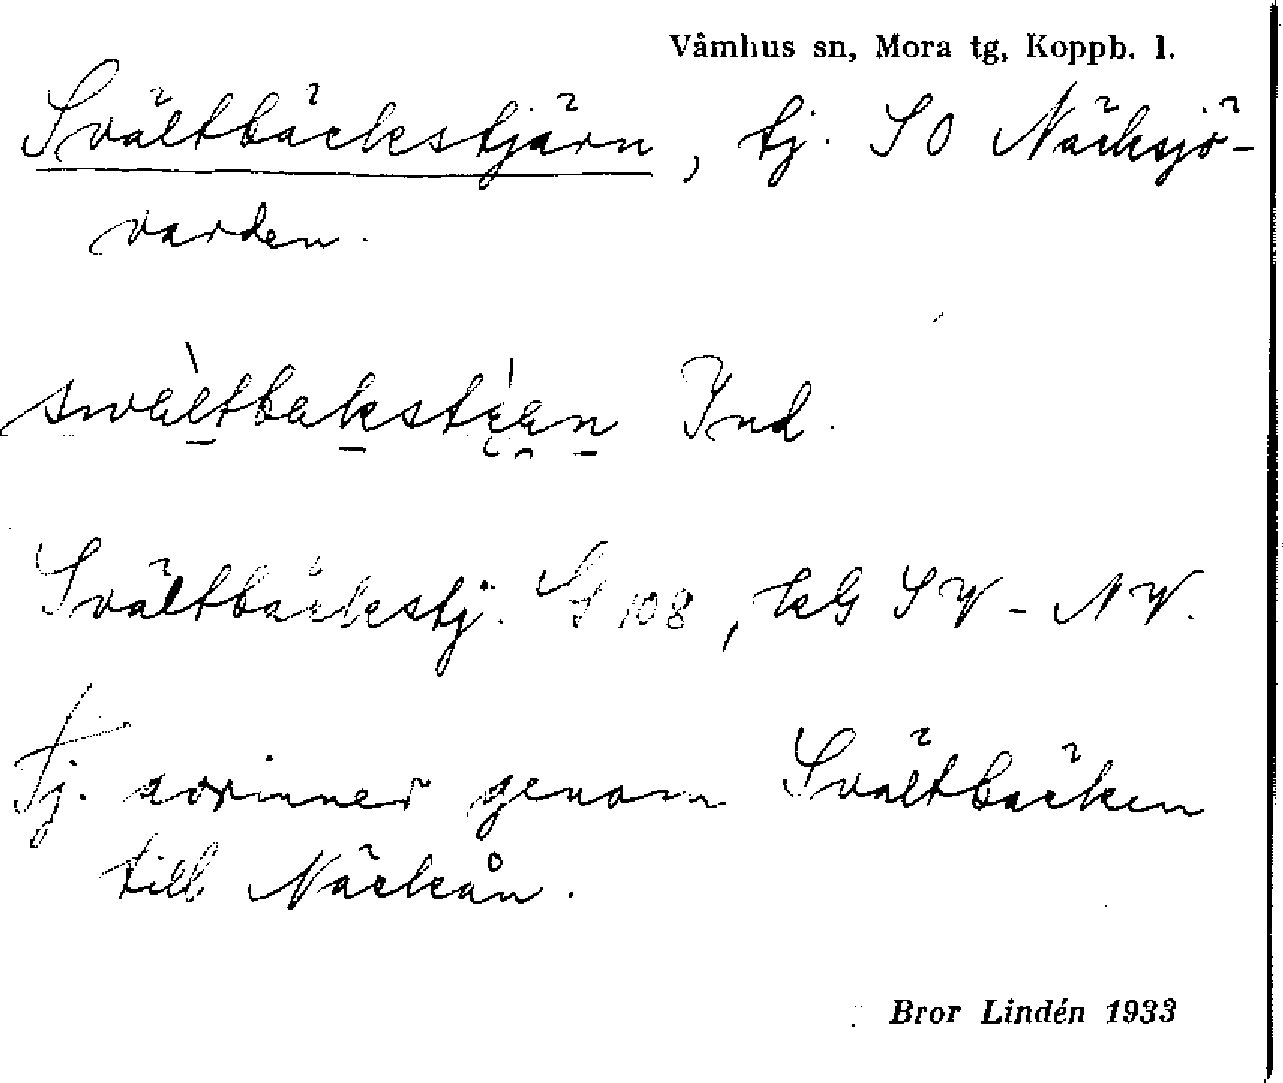 Våmhus sn, Mora tg, Koppb. l.
Svältbäckstjärn, tj. SO Näcksjö-
varden.
Ind.
Svältbäckstj. 108, SV - NV.
Tj. avrinner genom Svältbäcken
till Näckån.
Bror Lindén 1933